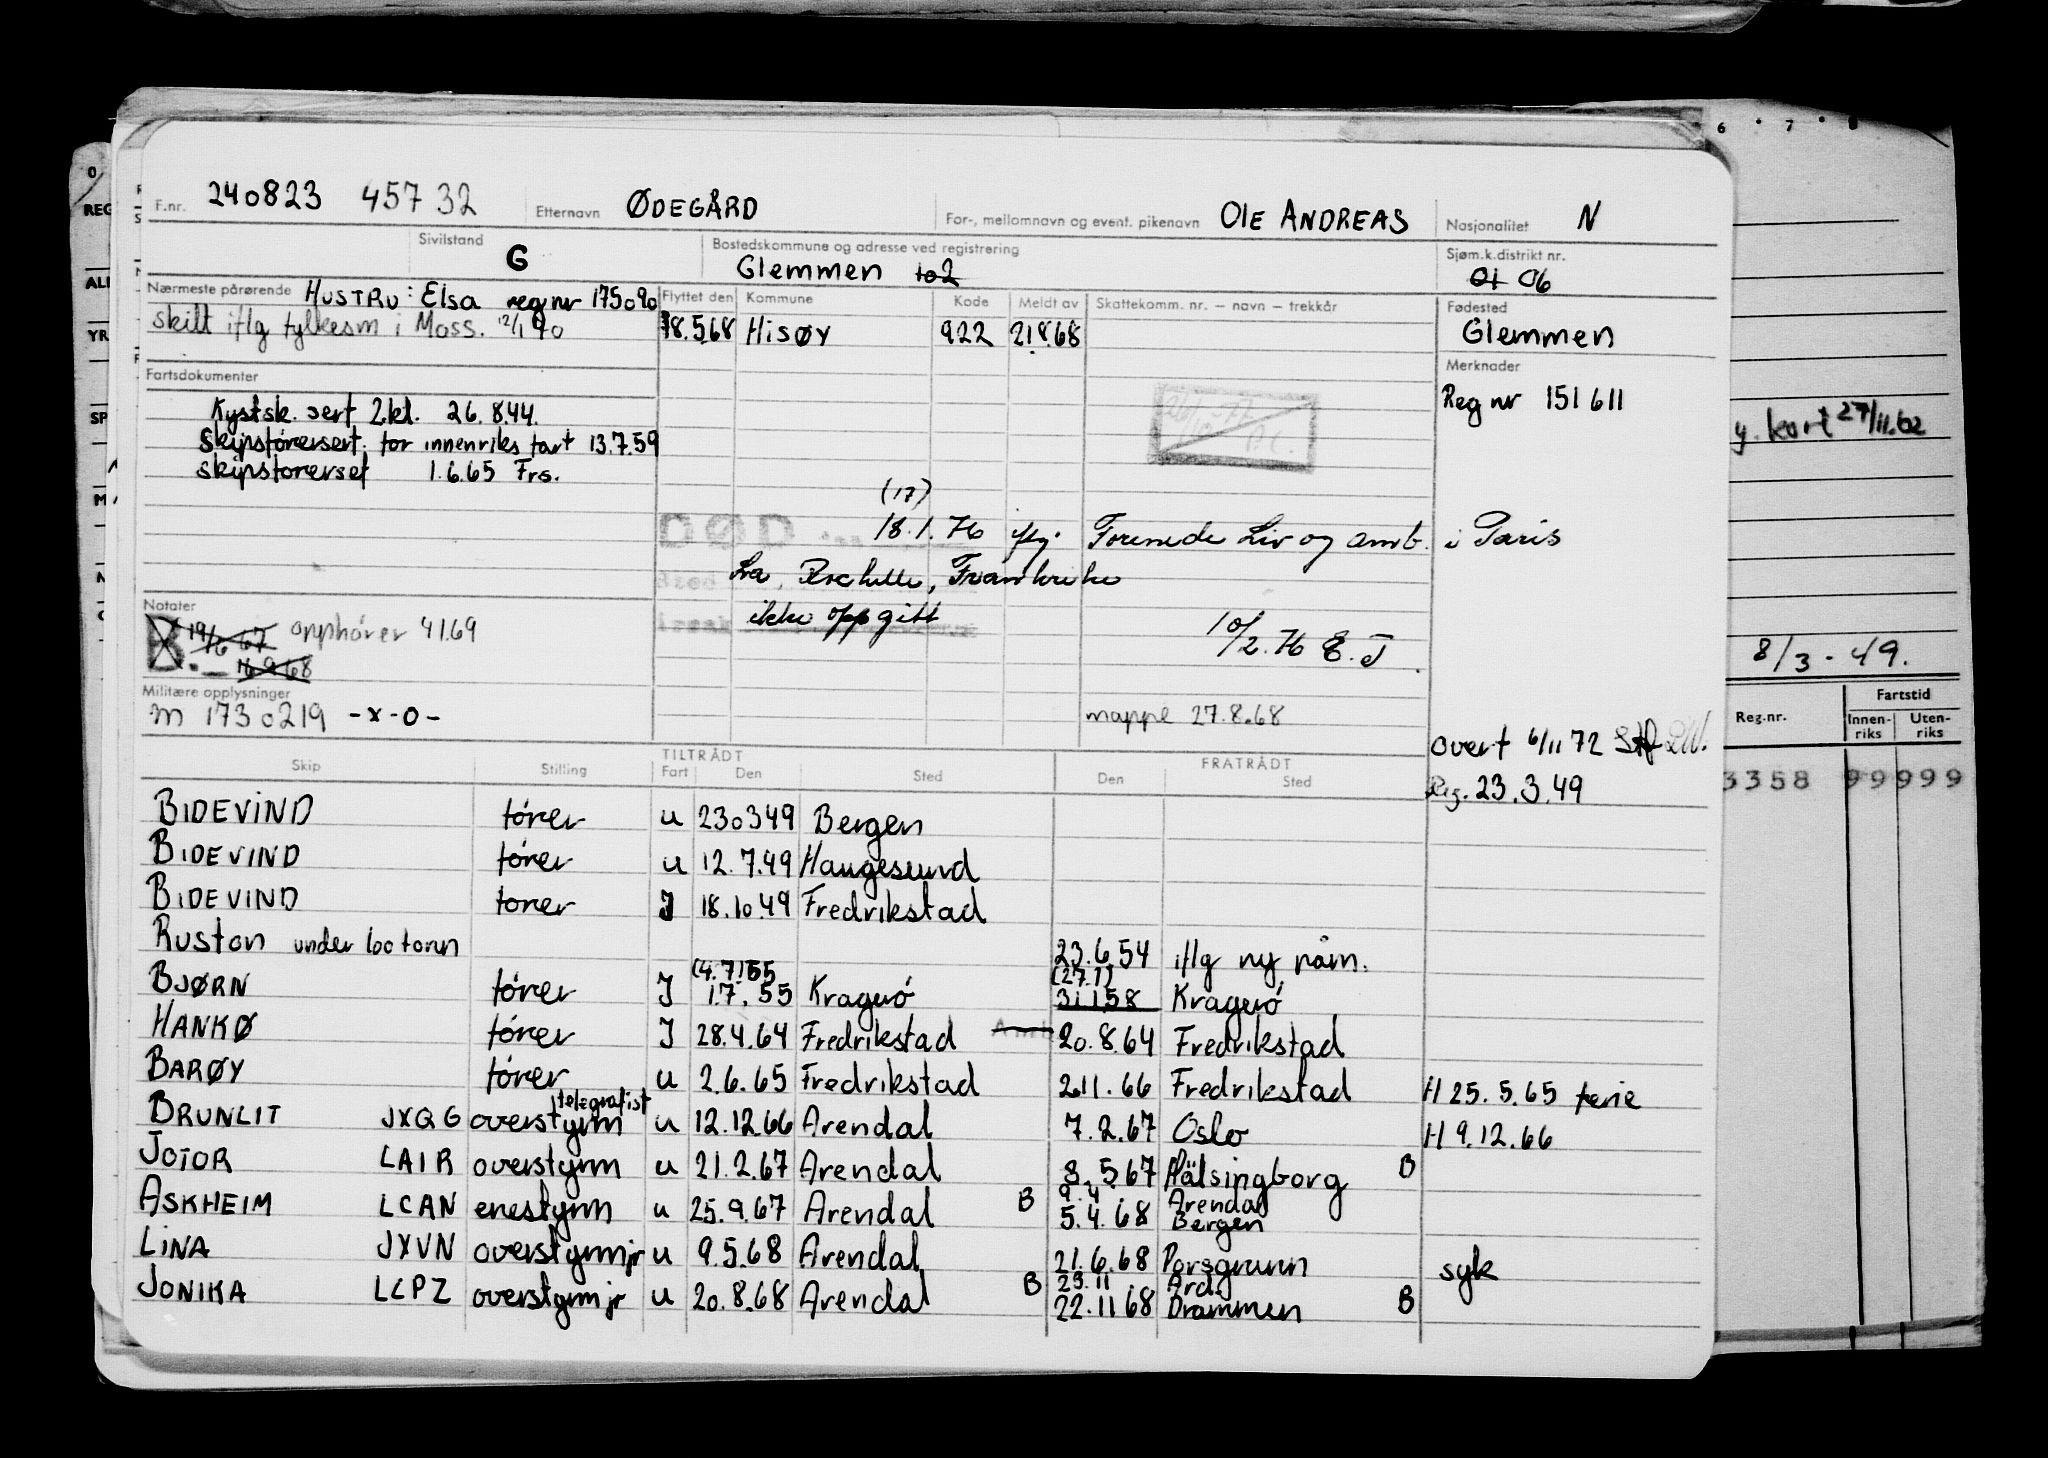 F.nr. 240823 45732 Etternavn ØDEGÅRD For-, mellomnavn og event. pikenavn OlE ANDREAS Nasjonalitet N
Sivilstand G Bostedskommune og adresse ved registrering Glemmen 102 Sjøm.k.distrikt nr. 01 06
Nærmeste pårørende HUSTRU: Elsa reg nr 175090 Flyttet den Kommune Kode Meldt av Skattekomm. nr. — navn — trekkår Fødested
skilt iflg fylkesm i Moss. 12/1 70 18.5.68 HisøY 922 21.8.68 Glemmen
Fartsdokumenter Merknader
Kystsk. sert 2kl. 26.8.44. Reg nr 151611
Skipsførersert. for innenriks fart 13.7.59
skipsførerset 1.6.65 Frs.
(17)
DØD 18.1.76 iflg. Forenede Liv og amb. i Paris
Sted La Rochelle, Frankrike
Årsak ikke oppgitt
10/2.76 E.J.
Notater
B 19/6 67 opphører 4169
16 9 68
Militære opplysninger
m 1730219 -x-o- mappe 27.8.68
overf 6/11 72
Reg. 23.3.49
Skip Stilling TILTRÅDT Fart Den Sted FRATRÅDT Den Sted
BIDEVIND fører u 230349 Bergen
BIDEVIND fører u 12.7.49 Haugesund
BIDEVIND fører J 18.10.49 Fredrikstad
Ruston under 100 tonn 23.6.54 iflg ny påm.
(4.7)55 (27.1)
BJØRN fører J 1.7.55 Kragerø 31.1.58 Kragerø
HANKØ fører J 28.4.64 Fredrikstad 20.8.64 Fredrikstad
BARØY fører u 2.6.65 Fredrikstad 2.11.66 Fredrikstad H 25.5.65 ferie
telegrafist
BRUNLIT JXQG overstyrm u 12.12.66 Arendal 7.2.67 Oslo H 9.12.66
JOTOR LAIR overstyrm u 21.2.67 Arendal 8.5.67 Hälsingborg B
9.4 Arendal
ASKHEIM LCAN enestyrm u 25.9.67 Arendal B 5.4.68 Bergen
LINA JXVN overstyrm jr u 9.5.68 Arendal 21.6.68 Porsgrunn syk
23.11 Ard.
JONIKA LCPZ overstyrm jr u 20.8.68 Arendal B 22.11 68 Drammen B
6 · 7 · 8
y. kort 27/11.62
8/3 - 49.
Reg.nr. Fartstid
Innen-riks Uten-riks
3358 99 999